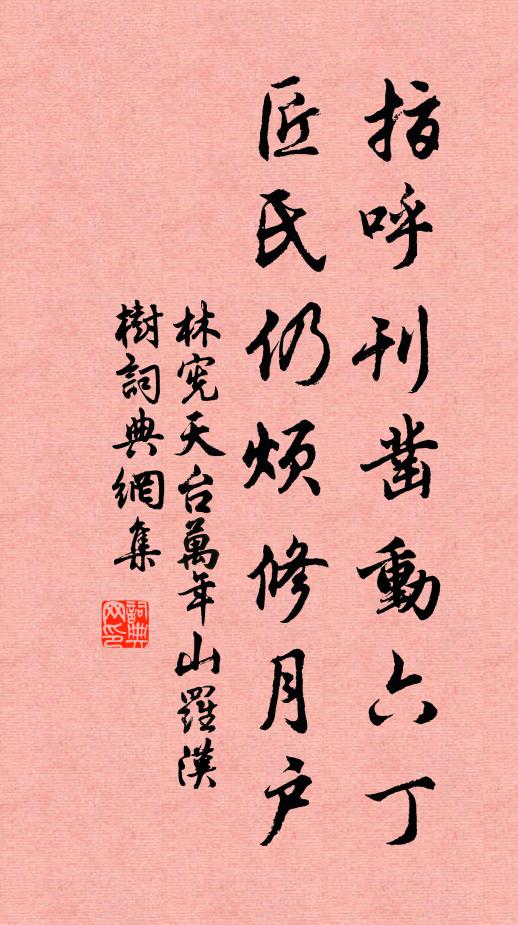 指呼刊鑿動六丁
匠氏仍煩修月户
林宪天台萬年山羅漢
樹詞典網集
詞典网印